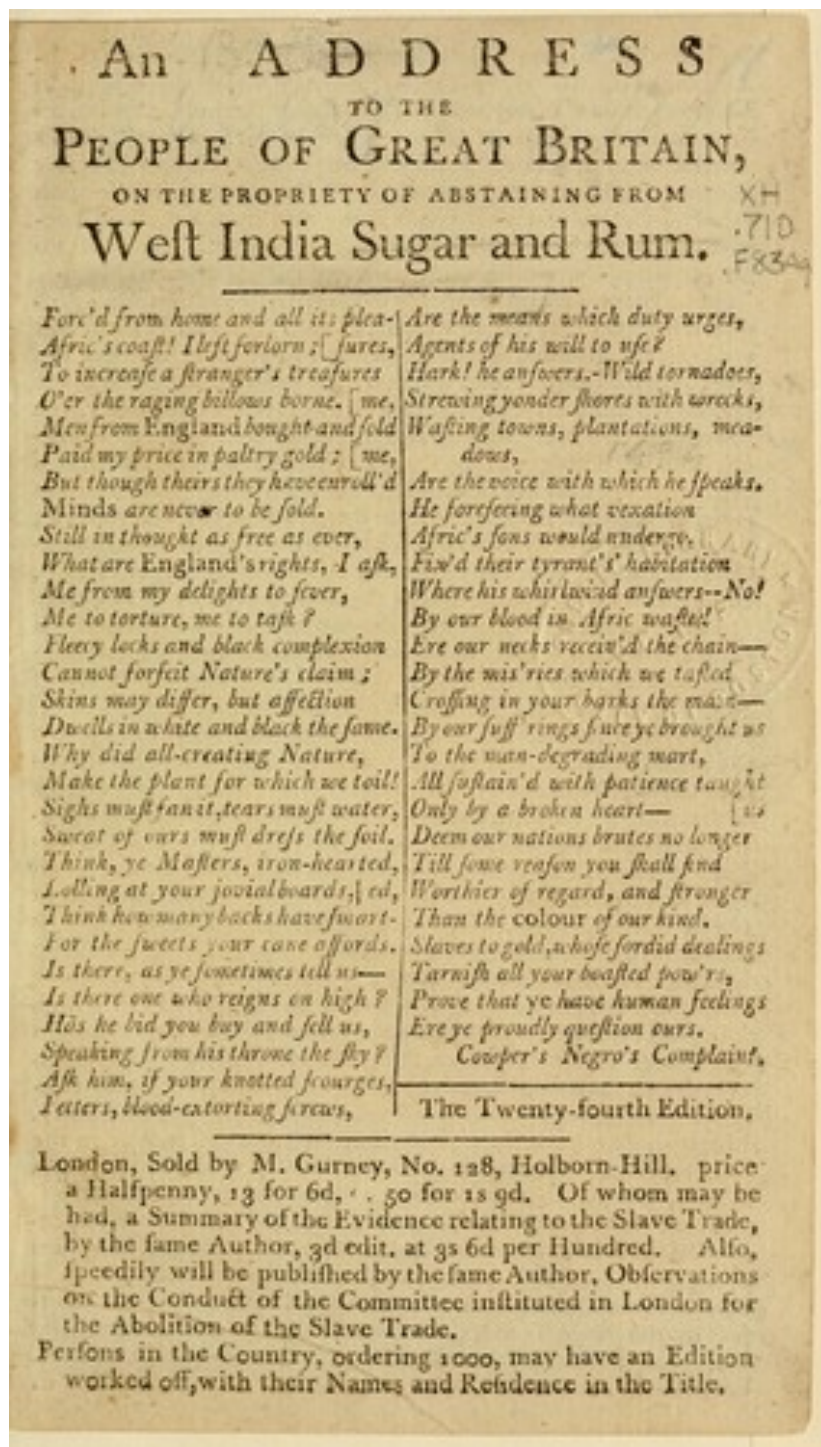 An ADDRESS
TO THE
PEOPLE OF GREAT BRITAIN,
ON THE PROPRIETY OF ABSTAINING FROM
Weſt India Sugar and Rum.
XH
.71D
.F83Ag
Forc'd from home and all its plea-
Afric's coaſt! I left forlorn; [ſures,
To increaſe a ſtranger's treaſures
O'er the raging billows borne. [me,
Men from England bought and ſold
Paid my price in paltry gold; [me,
But though theirs they have enroll'd
Minds are never to be ſold.
Still in thought as free as ever,
What are England's rights, I aſk,
Me from my delights to ſever,
Me to torture, me to taſk?
Fleecy locks and black complexion
Cannot forfeit Nature's claim;
Skins may differ, but affection
Dwells in white and black the ſame.
Why did all-creating Nature,
Make the plant for which we toil!
Sighs muſt fan it, tears muſt water,
Sweat of ours muſt dreſs the ſoil.
Think, ye Maſters, iron-hearted,
Lolling at your jovial boards, [ed,
Think how many backs have ſmart-
For the ſweets your cane affords.
Is there, as ye ſometimes tell us—
Is there one who reigns on high?
Has he bid you buy and ſell us,
Speaking from his throne the ſky?
Aſk him, if your knotted ſcourges,
Fetters, blood-extorting ſcrews,
Are the means which duty urges,
Agents of his will to uſe?
Hark! he anſwers.-Wild tornadoes,
Strewing yonder ſhores with wrecks,
Waſting towns, plantations, mea-
dows,
Are the voice with which he ſpeaks.
He foreſeeing what vexation
Afric's ſons would undergo,
Fix'd their tyrant's' habitation
Where his whirlwind anſwers--No!
By our blood in Afric waſted!
Ere our necks receiv'd the chain—
By the mis'ries which we taſted
Croſſing in your barks the main—
By our ſuff'rings ſince ye brought us
To the man-degrading mart,
All ſuſtain'd with patience taught
Only by a broken heart— [us
Deem our nations brutes no longer
Till ſome reaſon you ſhall find
Worthier of regard, and ſtronger
Than the colour of our kind.
Slaves to gold, whoſe ſordid dealings
Tarniſh all your boaſted pow'rs,
Prove that ye have human feelings
Ere ye proudly queſtion ours.
Cowper's Negro's Complaint.
The Twenty-fourth Edition.
London, Sold by M. Gurney, No. 128, Holborn-Hill. price
a Halfpenny, 13 for 6d, . 50 for 1s 9d. Of whom may be
had, a Summary of the Evidence relating to the Slave Trade,
by the ſame Author, 3d edit. at 3s 6d per Hundred. Alſo,
ſpeedily will be publiſhed by the ſame Author, Obſervations
on the Conduct of the Committee inſtituted in London for
the Abolition of the Slave Trade.
Perſons in the Country, ordering 1000, may have an Edition
worked off, with their Names and Reſidence in the Title.